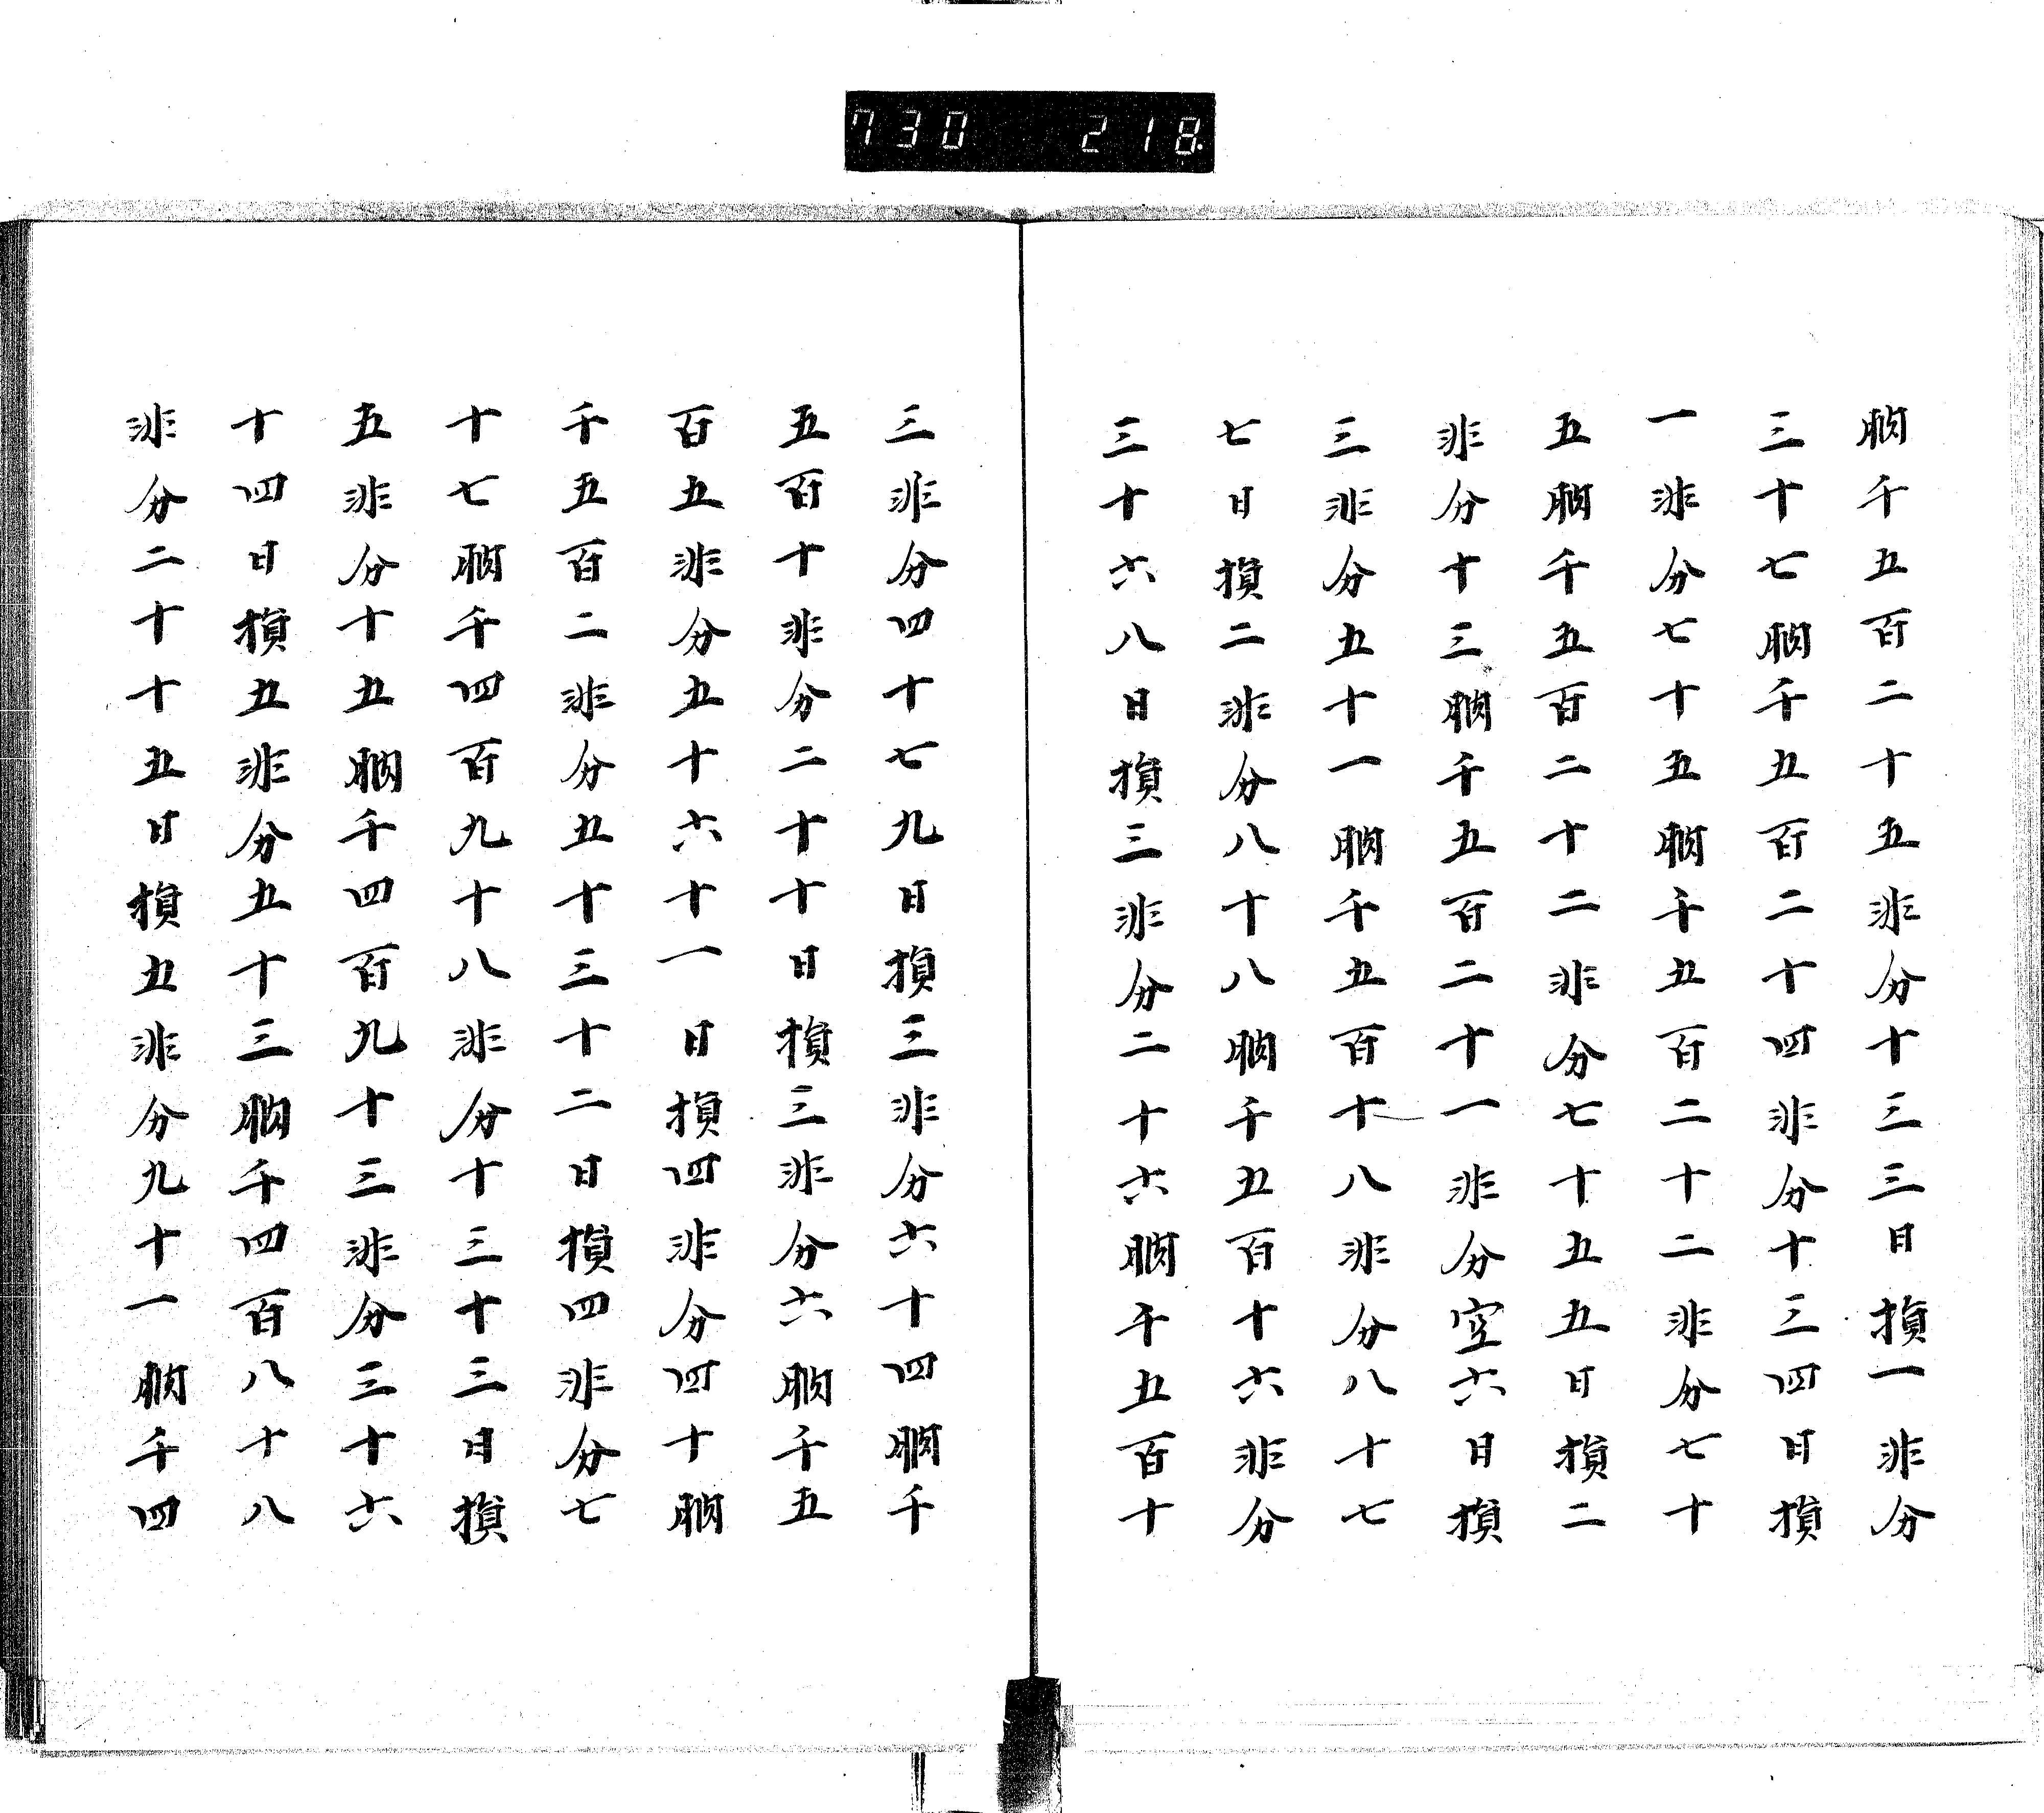 730 218
朒千五百二十五非分十三三日損一非分
三十七朒千五百二十四非分十三四日損
一非分七十五朒千五百二十二非分七十
五朒千五百二十二非分七十五五日損二
非分十三朒千五百二十一非分空六日損
三非分五十一朒千五百十八非分八十七
七日損二非分八十八朒千五百十六非分
三十六八日損三非分二十六朒千五百十
三非分四十七九日損三非分六十四朒千
五百十非分二十十日損三非分六朒千五
百五非分五十六十一日損四非分四十朒
千五百二非分五十三十二日損四非分七
十七朒千四百九十八非分十三十三日損
五非分十五朒千四百九十三非分三十六
十四日損五非分五十三朒千四百八十八
非分二十十五日損五非分九十一朒千四